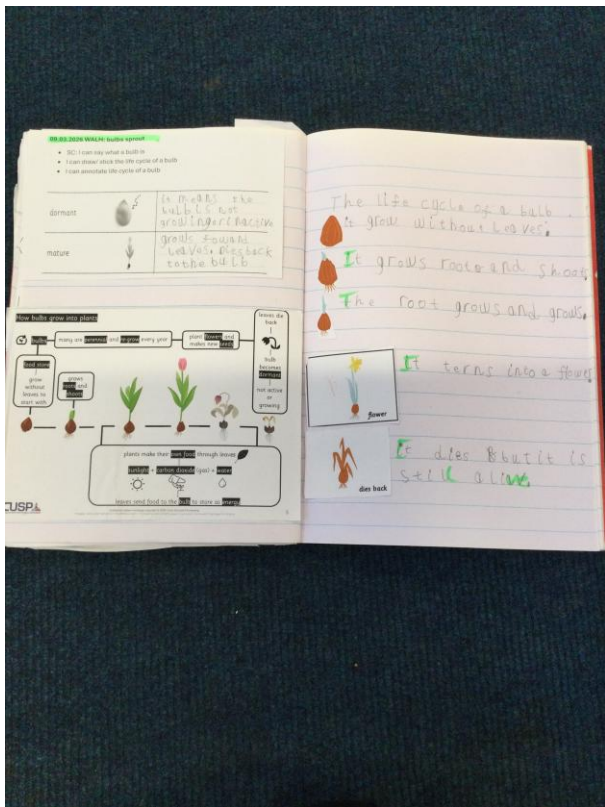 09.02.2026 WALH: bulbs sprout
SC: I can say what a bulb is
I can draw/ stick the life cycle of a bulb
I can annotate life cycle of a bulb
dormant
it means the
bulb is not
growing or inactive
mature
grows toward
leaves. Dies back
to the bulb
How bulbs grow into plants
bulbs
many are perennial and re-grow every year
plant flowers and
makes new seeds
leaves die
back
bulb
becomes
dormant
not active
or
growing
food store
grow
without
leaves to
start with
grows
roots and
shoots
plants make their own food through leaves
sunlight + carbon dioxide (gas) + water
leaves send food to the bulb to store as energy
CUSP
The life cycle of a bulb.
it grow without leaves.
It grows roots and shoots
The root grows and grows.
It terns into a flower
flower
It dies but it is
still alive
dies back